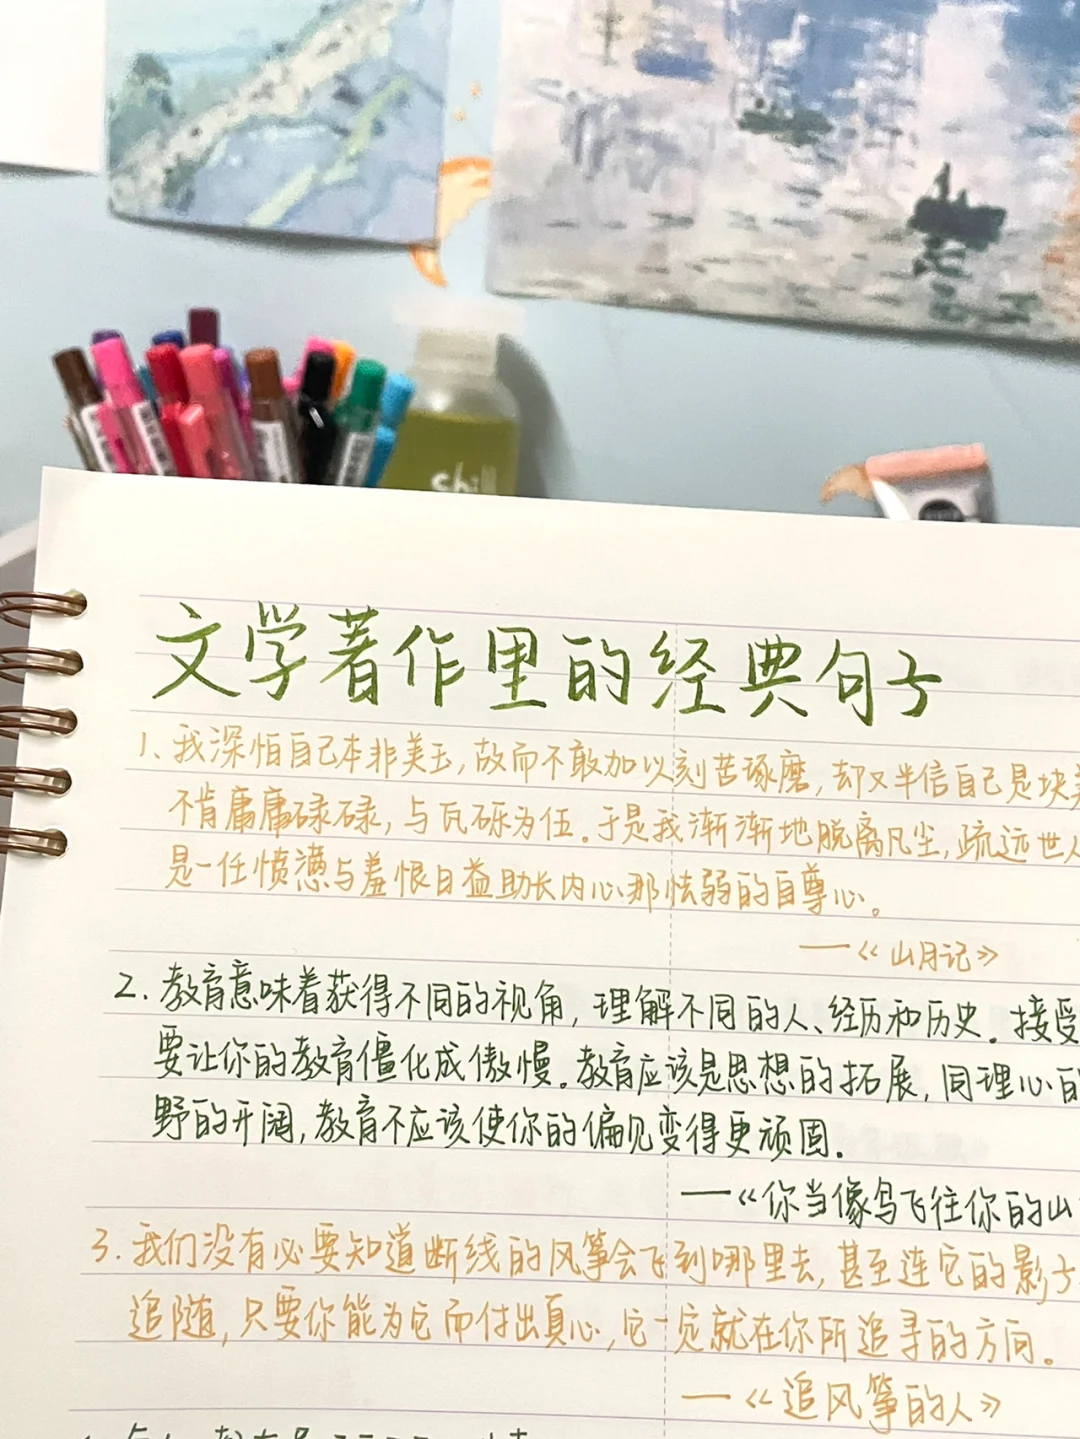 chill
文学著作里的经典句子
1、我深怕自己本非美玉，故而不敢加以刻苦琢磨，却又半信自己是块美
不肯庸庸碌碌，与瓦砾为伍。于是我渐渐地脱离凡尘，疏远世人
是一任愤懑与羞恨日益助长内心那怯弱的自尊心。
——《山月记》
2.教育意味着获得不同的视角，理解不同的人、经历和历史.接受
要让你的教育僵化成傲慢.教育应该是思想的拓展，同理心的
野的开阔，教育不应该使你的偏见变得更顽固.
——《你当像鸟飞往你的山
3.我们没有必要知道断线的风筝会飞到哪里去，甚至连它的影子
追随，只要你能为它而付出真心，它一定就在你所追寻的方向。
——《追风筝的人》